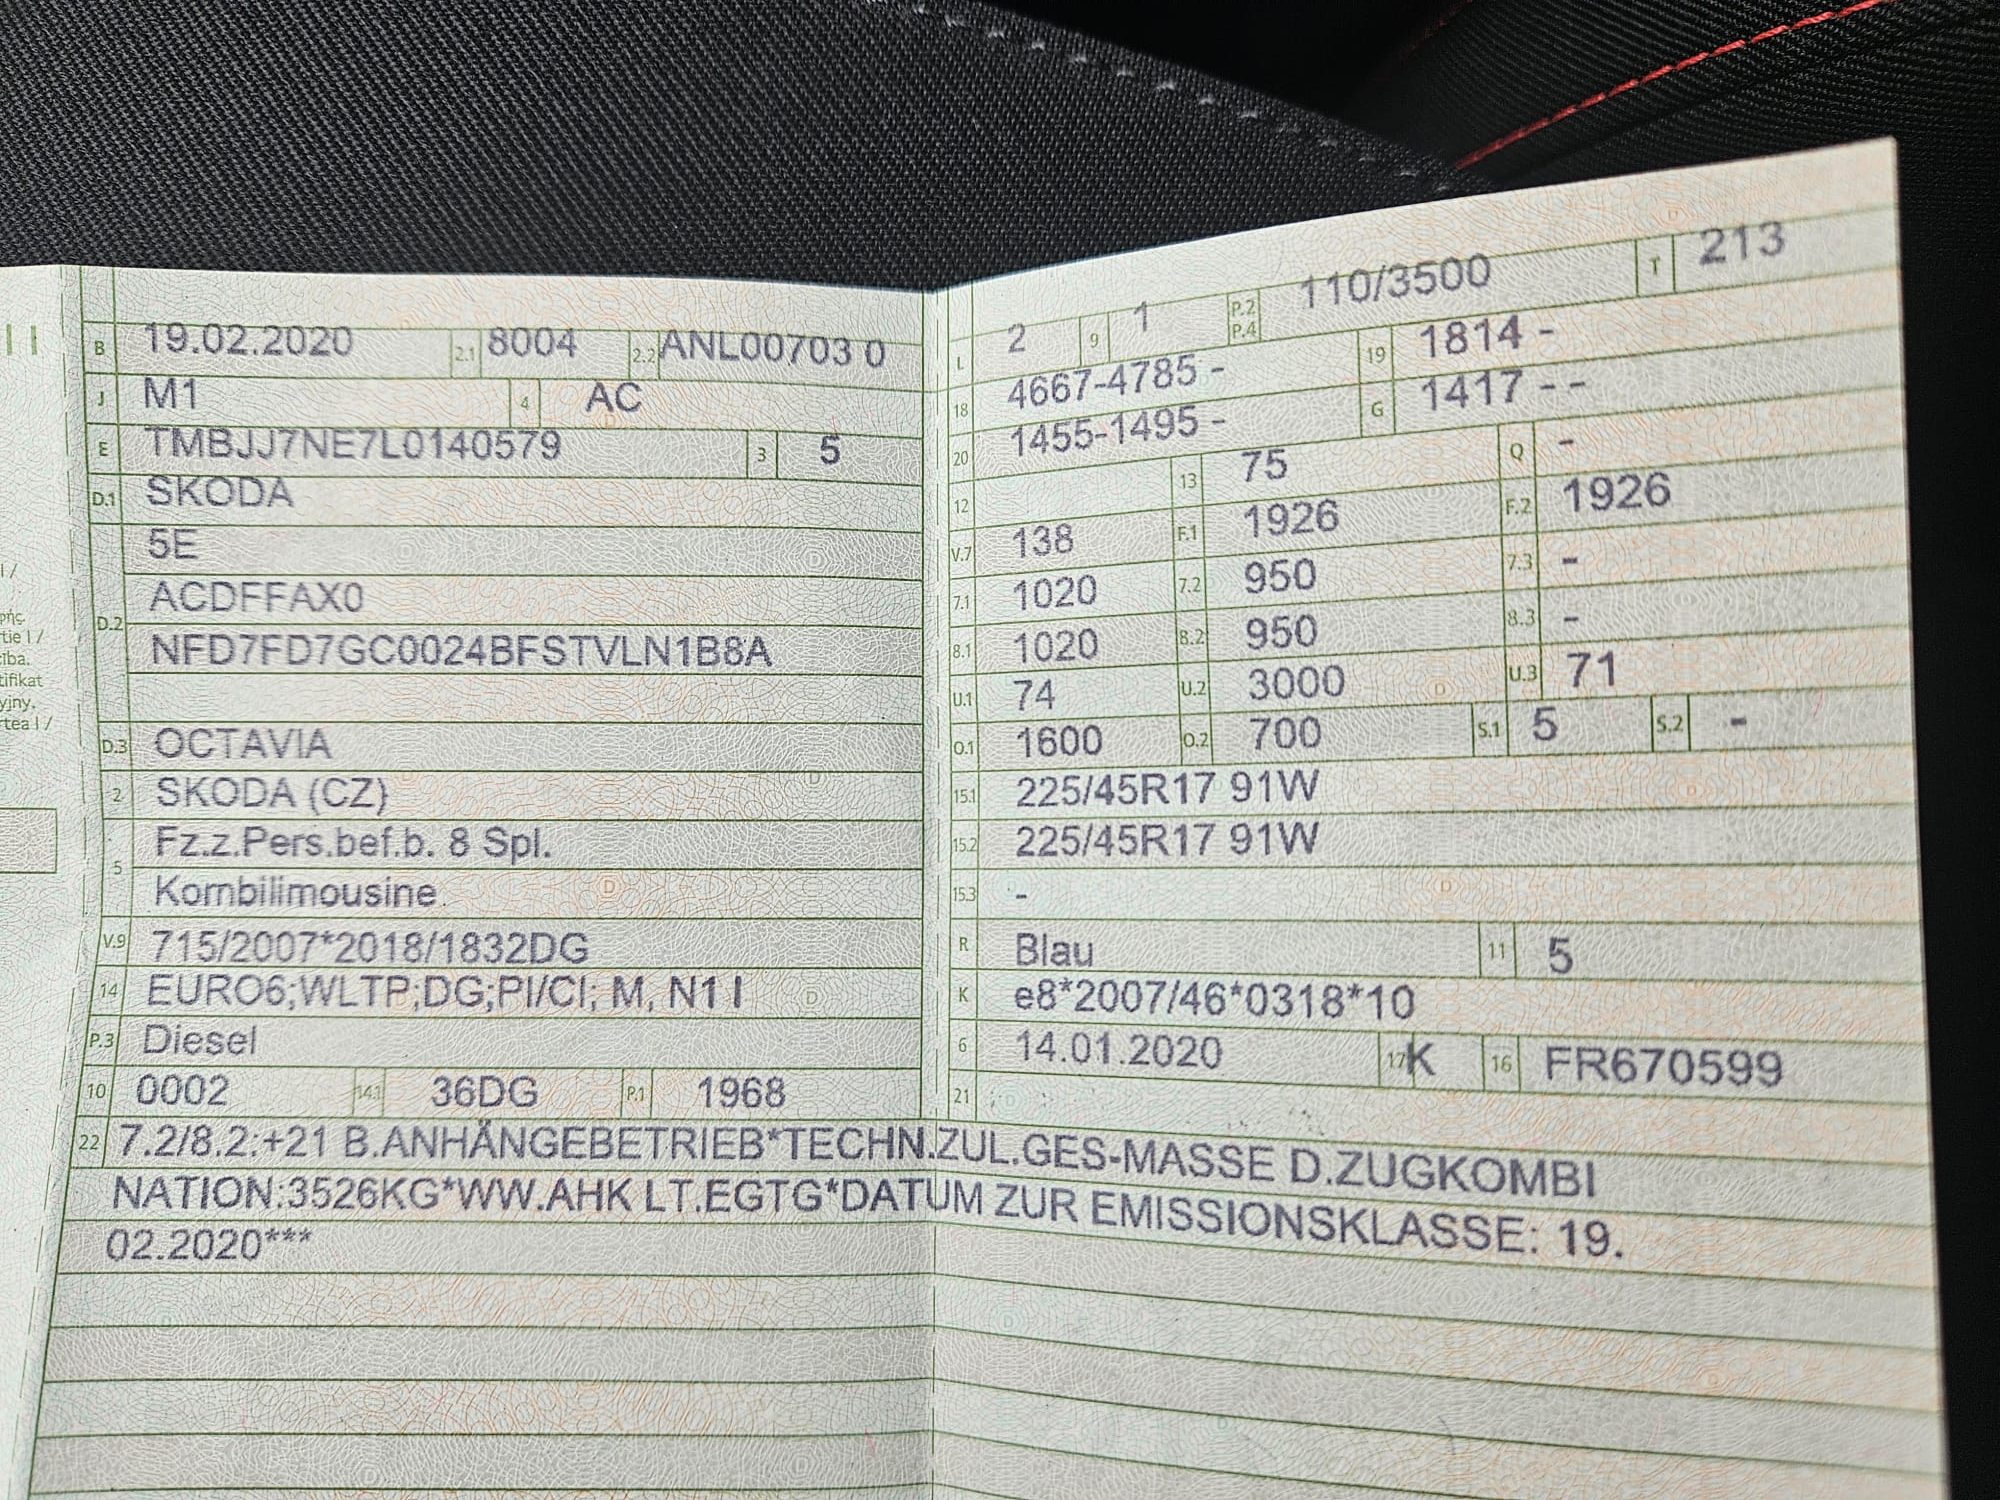 B 19.02.2020 2.1 8004 2.2 ANL00703 0
J M1 4 AC
E TMBJJ7NE7L0140579 3 5
D.1 SKODA
5E
D.2 ACDFFAX0
NFD7FD7GC0024BFSTVLN1B8A
D.3 OCTAVIA
2 SKODA (CZ)
5 Fz.z.Pers.bef.b. 8 Spl.
Kombilimousine
V.9 715/2007*2018/1832DG
14 EURO6;WLTP;DG;PI/CI; M, N1 I
P.3 Diesel
10 0002 14.1 36DG P.1 1968
L 2 9 1 P.2 P.4 110/3500 T 213
18 4667-4785 - 19 1814 -
20 1455-1495 - G 1417 - -
12 13 75 Q -
V.7 138 F.1 1926 F.2 1926
7.1 1020 7.2 950 7.3 -
8.1 1020 8.2 950 8.3 -
U.1 74 U.2 3000 U.3 71
O.1 1600 O.2 700 S.1 5 S.2 -
15.1 225/45R17 91W
15.2 225/45R17 91W
15.3 -
R Blau 11 5
K e8*2007/46*0318*10
6 14.01.2020 17 K 16 FR670599
21
22 7.2/8.2:+21 B.ANHÄNGEBETRIEB*TECHN.ZUL.GES-MASSE D.ZUGKOMBI
NATION:3526KG*WW.AHK LT.EGTG*DATUM ZUR EMISSIONSKLASSE: 19.
02.2020***